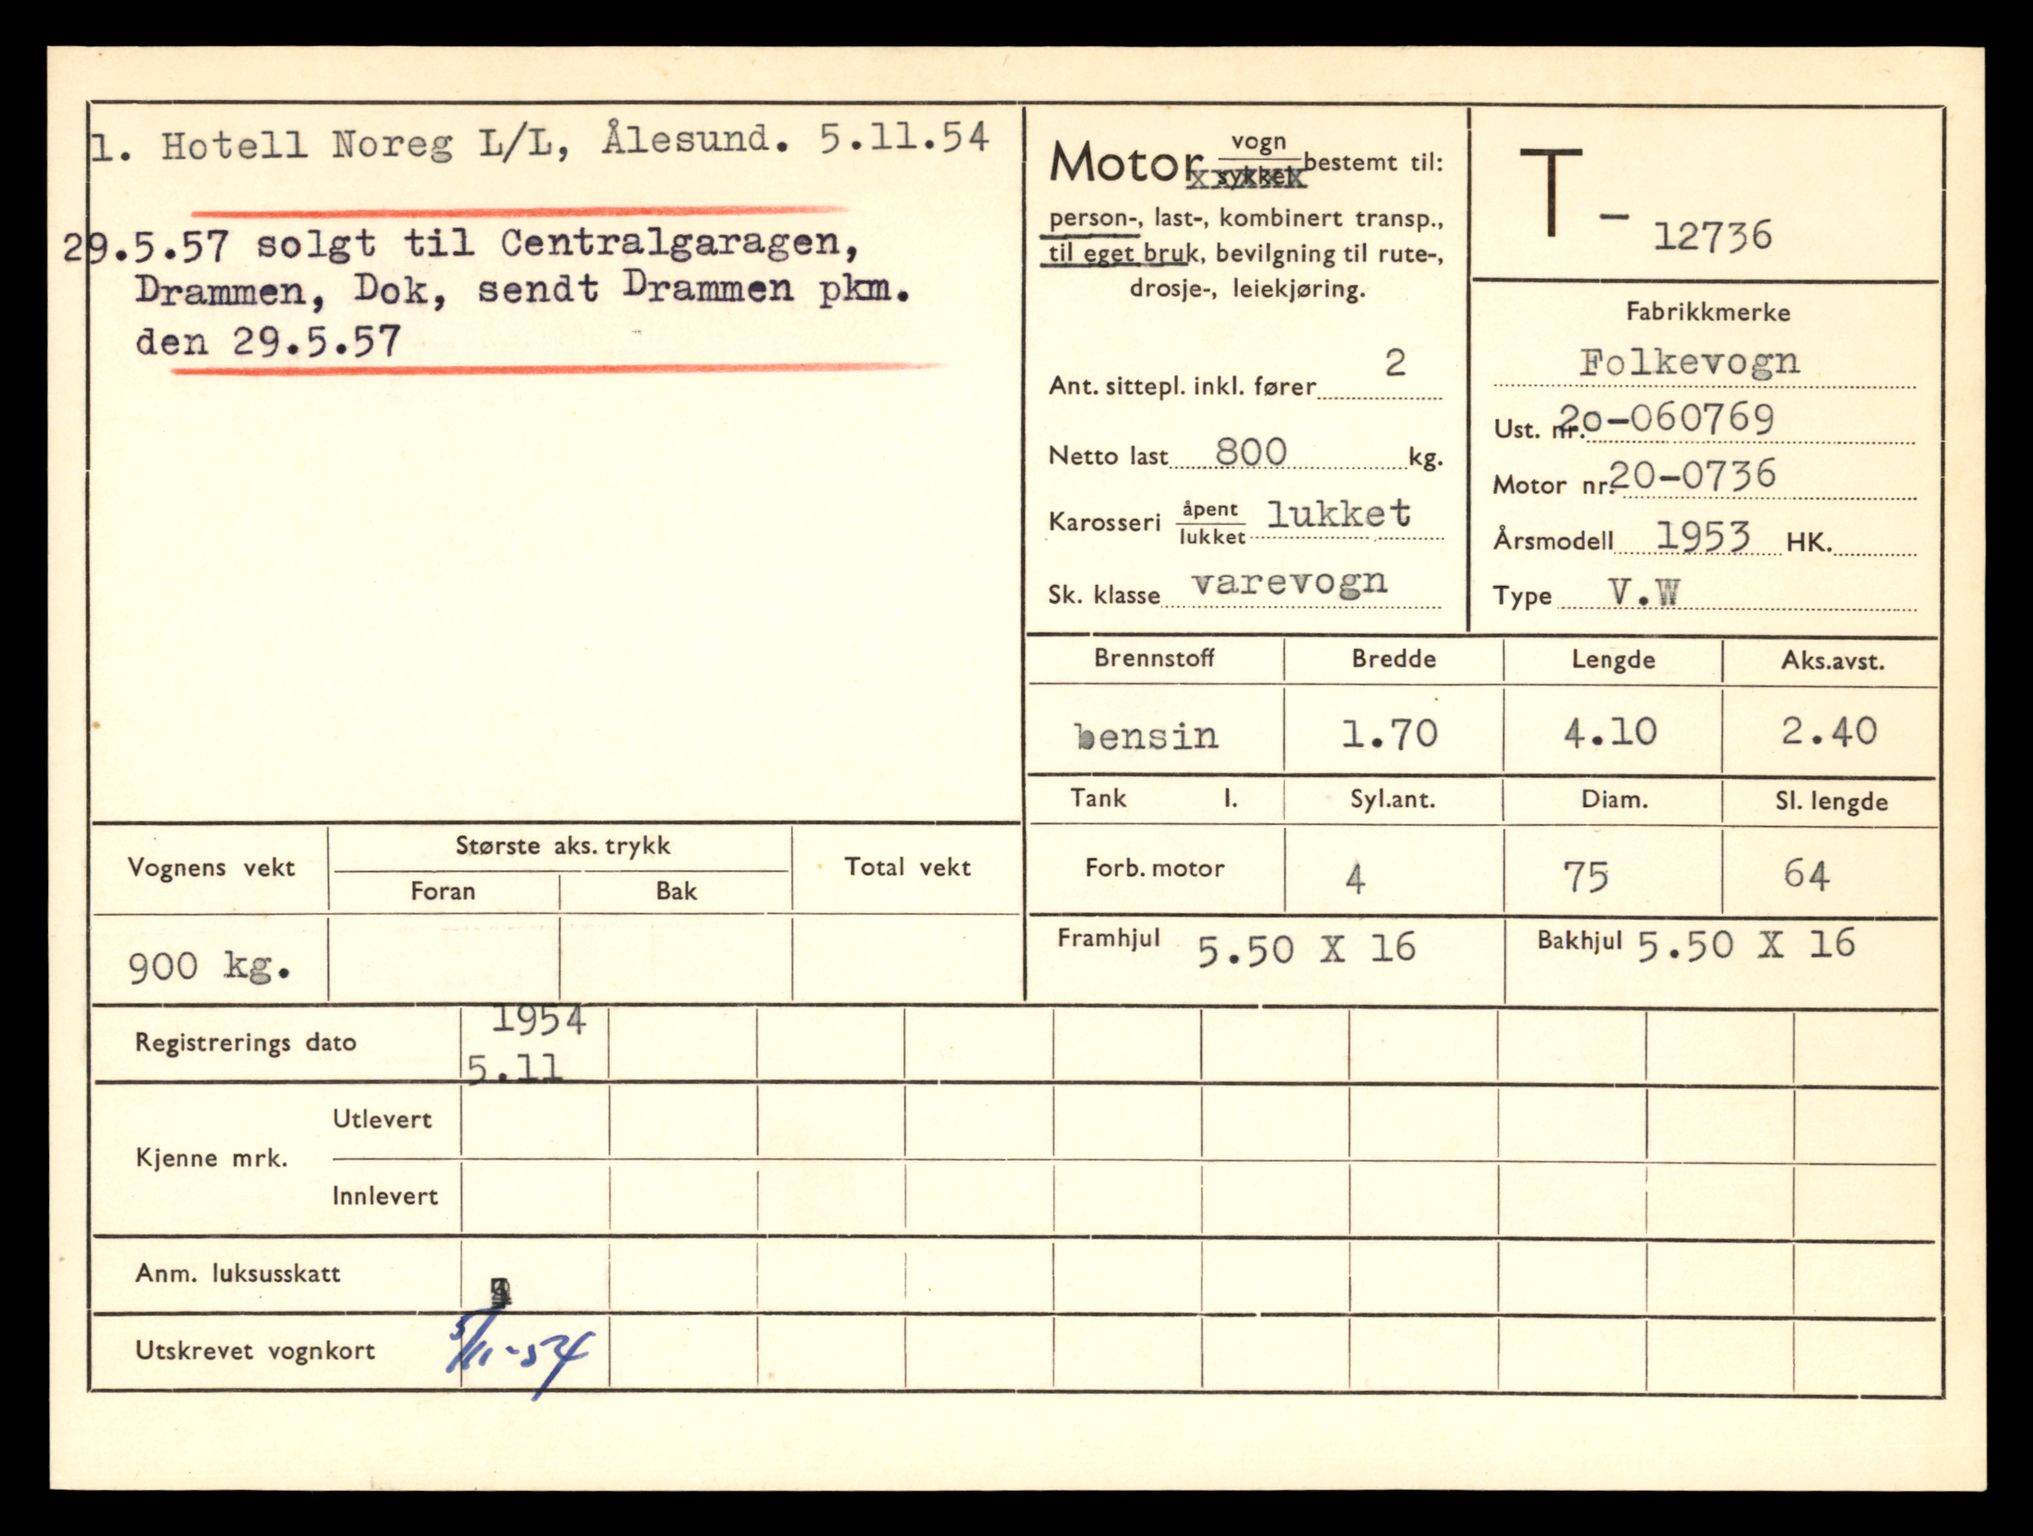 1. Hotell Noreg L/L, Ålesund. 5.11.54
29.5.57 solgt til Centralgaragen,
Drammen, Dok, sendt Drammen pkm.
den 29.5.57
Motor vogn sykkel bestemt til:
person-, last-, kombinert transp.,
til eget bruk, bevilgning til rute-,
drosje-, leiekjøring.
Ant. sittepl. inkl. fører 2
Netto last 800 kg.
Karosseri åpent lukket lukket
Sk. klasse varevogn
T - 12736
Fabrikkmerke
Folkevogn
Ust. nr. 2o-060769
Motor nr. 20-0736
Årsmodell 1953 HK.
Type V.W
Brennstoff Bredde Lengde Aks.avst.
bensin 1.70 4.10 2.40
Tank l. Syl.ant. Diam. Sl. lengde
Forb. motor 4 75 64
Framhjul 5.50 X 16 Bakhjul 5.50 X 16
Vognens vekt Største aks. trykk Total vekt
Foran Bak
900 kg.
Registrerings dato 1954
5.11
Kjenne mrk. Utlevert
Innlevert
Anm. luksusskatt
Utskrevet vognkort 5/11-54